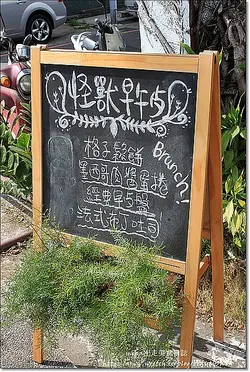 怪獸早午5
Brunch!
格子鬆餅
墨西哥肉醬蛋捲
經典早午盤
法式布丁吐司